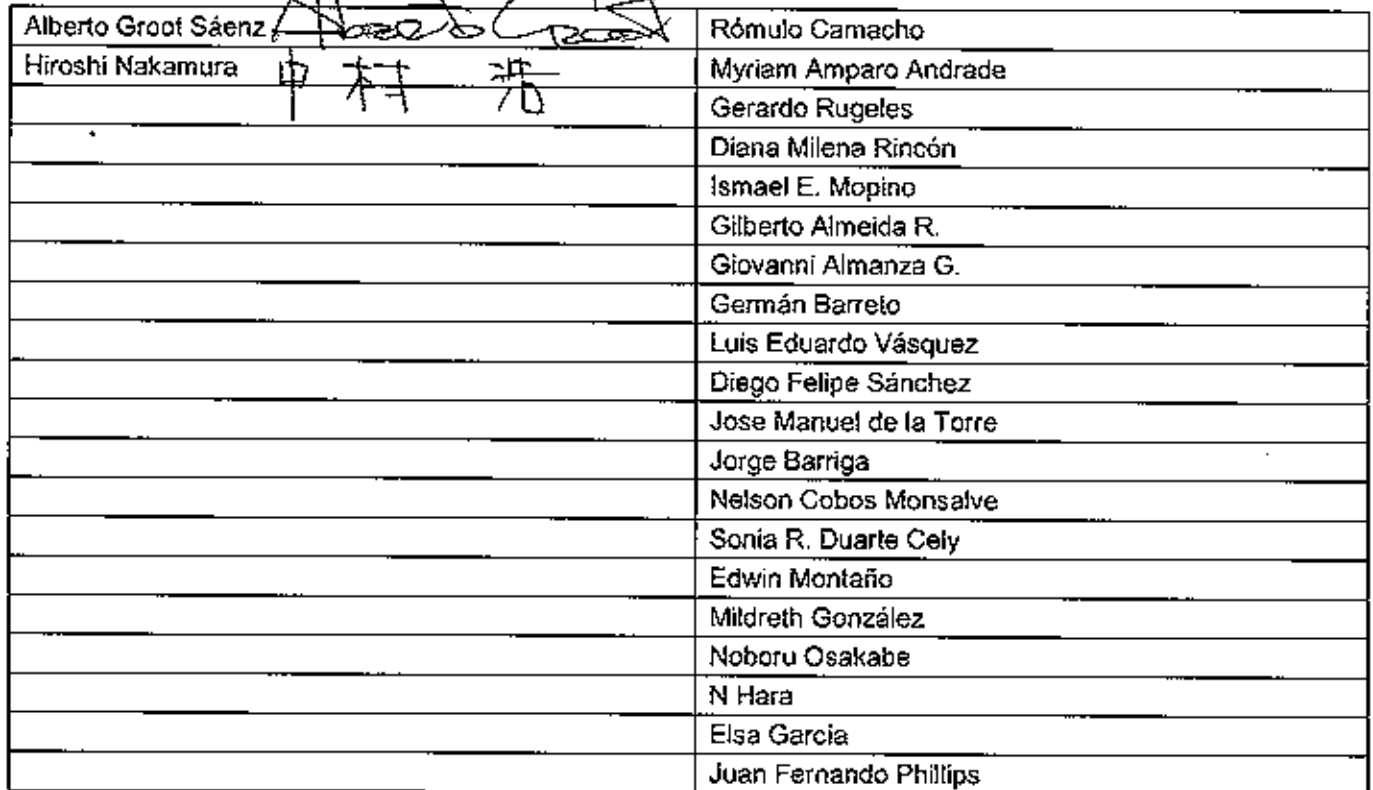 Alberto Groot Sáenz Rómulo Camacho
Hiroshi Nakamura 中村 浩 Myriam Amparo Andrade
Gerardo Rugeles
Diana Milena Rincón
Ismael E. Mopino
Gilberto Almeida R.
Giovanni Almanza G.
Germán Barreto
Luis Eduardo Vásquez
Diego Felipe Sánchez
Jose Manuel de la Torre
Jorge Barriga
Nelson Cobos Monsalve
Sonia R. Duarte Cely
Edwin Montaño
Mildreth González
Noboru Osakabe
N Hara
Elsa Garcia
Juan Fernando Phillips